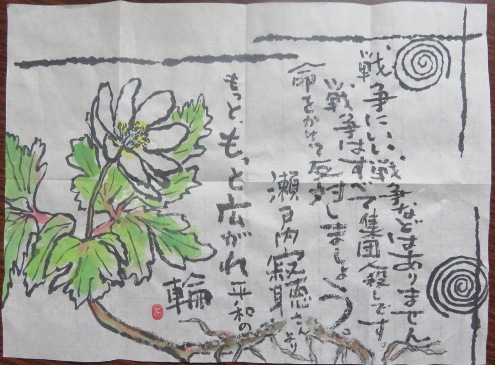 戦争にいい戦争などはありません
戦争はすべて集団人殺しです。
命をかけて反対しましょう。
瀬戸内寂聴さんより
もっと、もっと広がれ平和の
輪